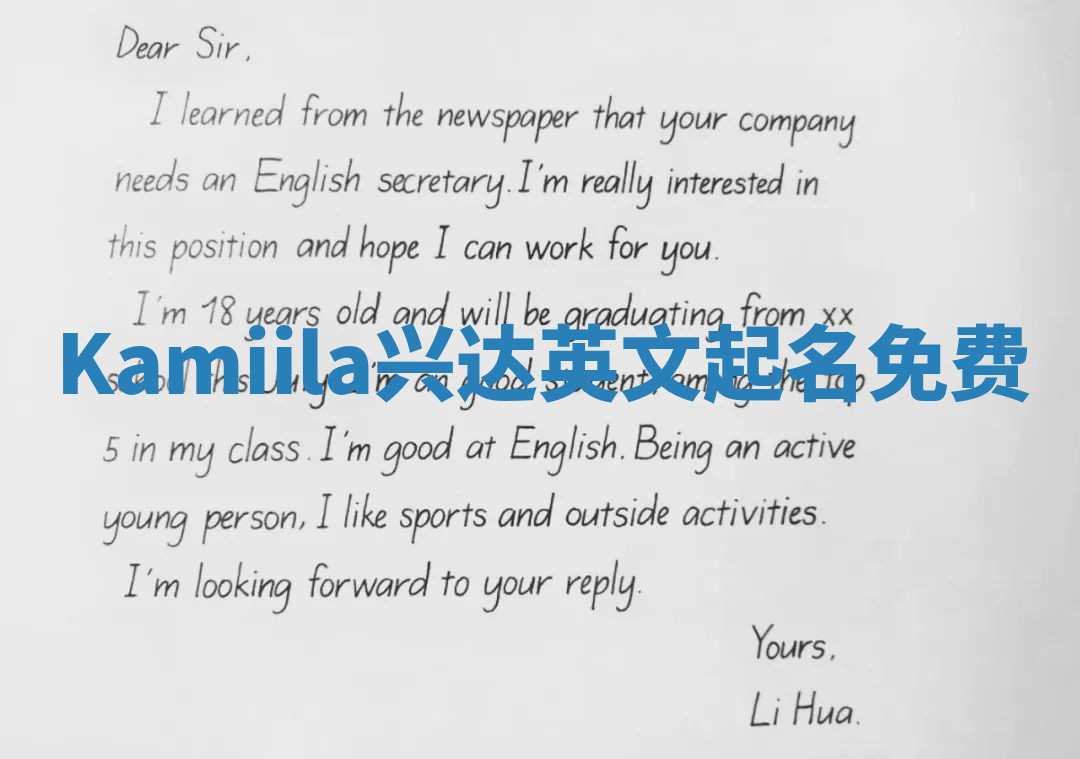 Dear Sir,
I learned from the newspaper that your company
needs an English secretary. I'm really interested in
this position and hope I can work for you.
I'm 18 years old and will be graduating from xx
Kamiila兴达英文起名免费
school this July. I'm an good student, among the top
5 in my class. I'm good at English. Being an active
young person, I like sports and outside activities.
I'm looking forward to your reply.
Yours,
Li Hua.